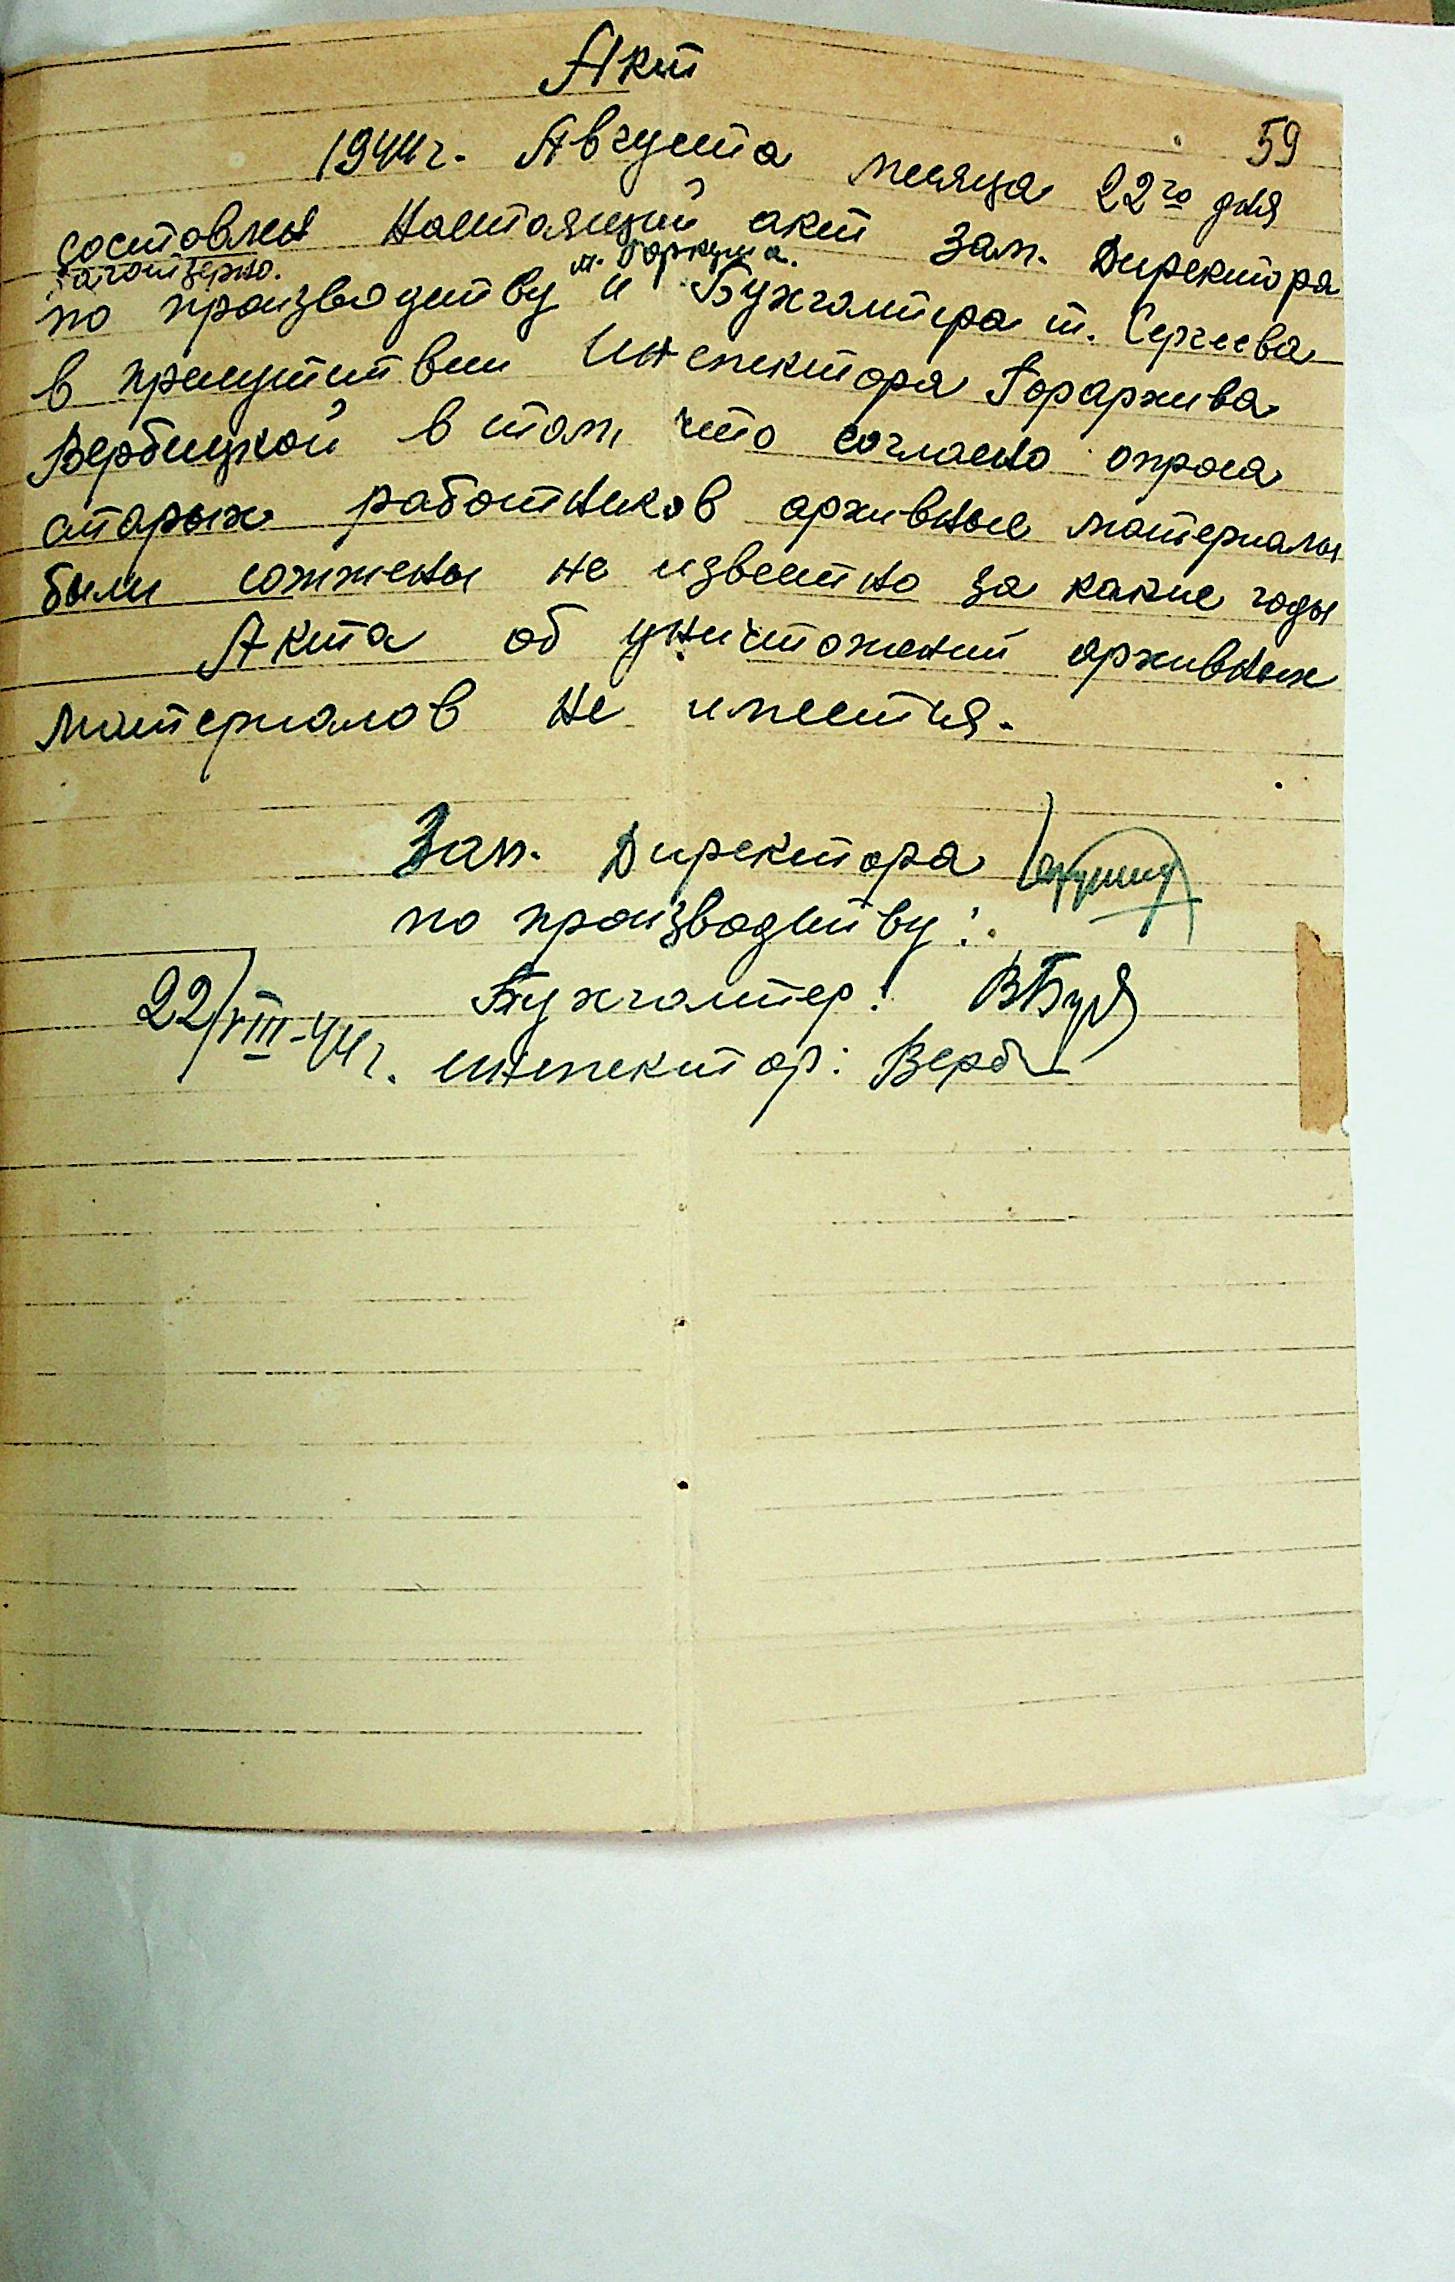 Акт
59
1944 г. Августа месяца 22го дня
составлен настоящий акт зам. Директора
Заготзерно.
по производству и Бухгалтера т. Сергеева
в присутствии Инспектора Горархива
Вербицкой в том, что согласно опроса
старых работников архивные материалы
были сожжены не известно за какие годы
Акта об уничтожений архивных
материалов не имеется.
Зам. Директора
по производству:
Бухгалтер:
22/VIII-44 г. инспектор: Верб